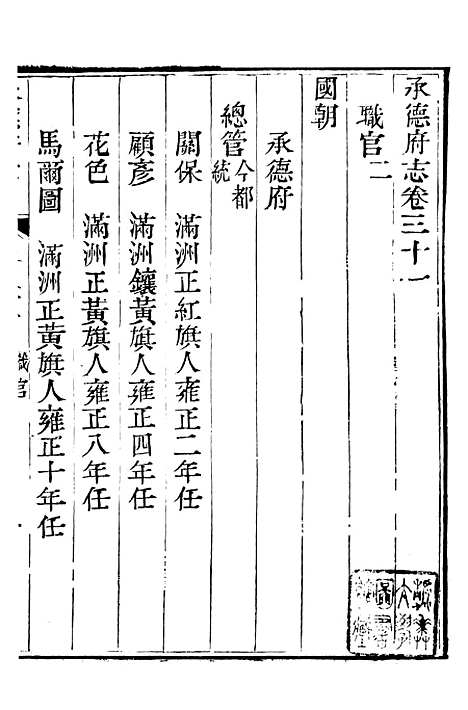 承德府志卷三十一
職官二
國朝
承德府
總管今都統
關保 滿洲正紅旗人雍正二年任
顧彥 滿洲鑲黃旗人雍正四年任
花色 滿洲正黃旗人雍正八年任
馬爾圖 滿洲正黃旗人雍正十年任
職官